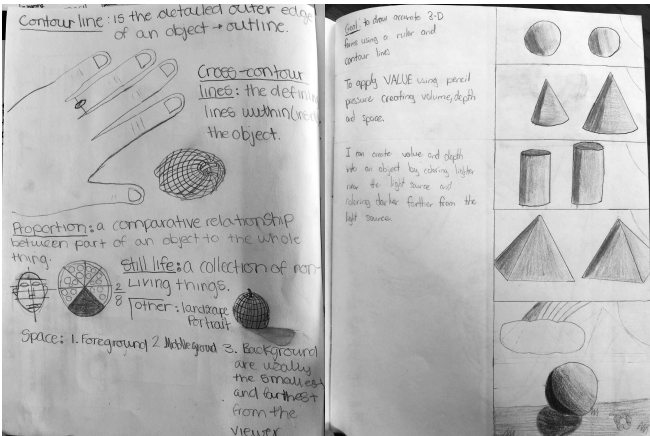 Contour line: is the detailed outer edge
of an object → outline.
Cross-contour
lines: the defining
lines within
the object.
Proportion: a comparative relationship
between part of an object to the whole
thing.
Still life: a collection of non-
Living things.
2/8
other: landscape
Portrait
Space: 1. Foreground 2. Middleground 3. Background
are usually
the smallest
and farthest
from the
viewer
Goal: to draw accurate 3-D
forms using a ruler and
contour lines
To apply VALUE using pencil
pressure creating volume, depth
and space.
I can create value and depth
into an object by coloring lighter
near the light source and
coloring darker farther from the
light source